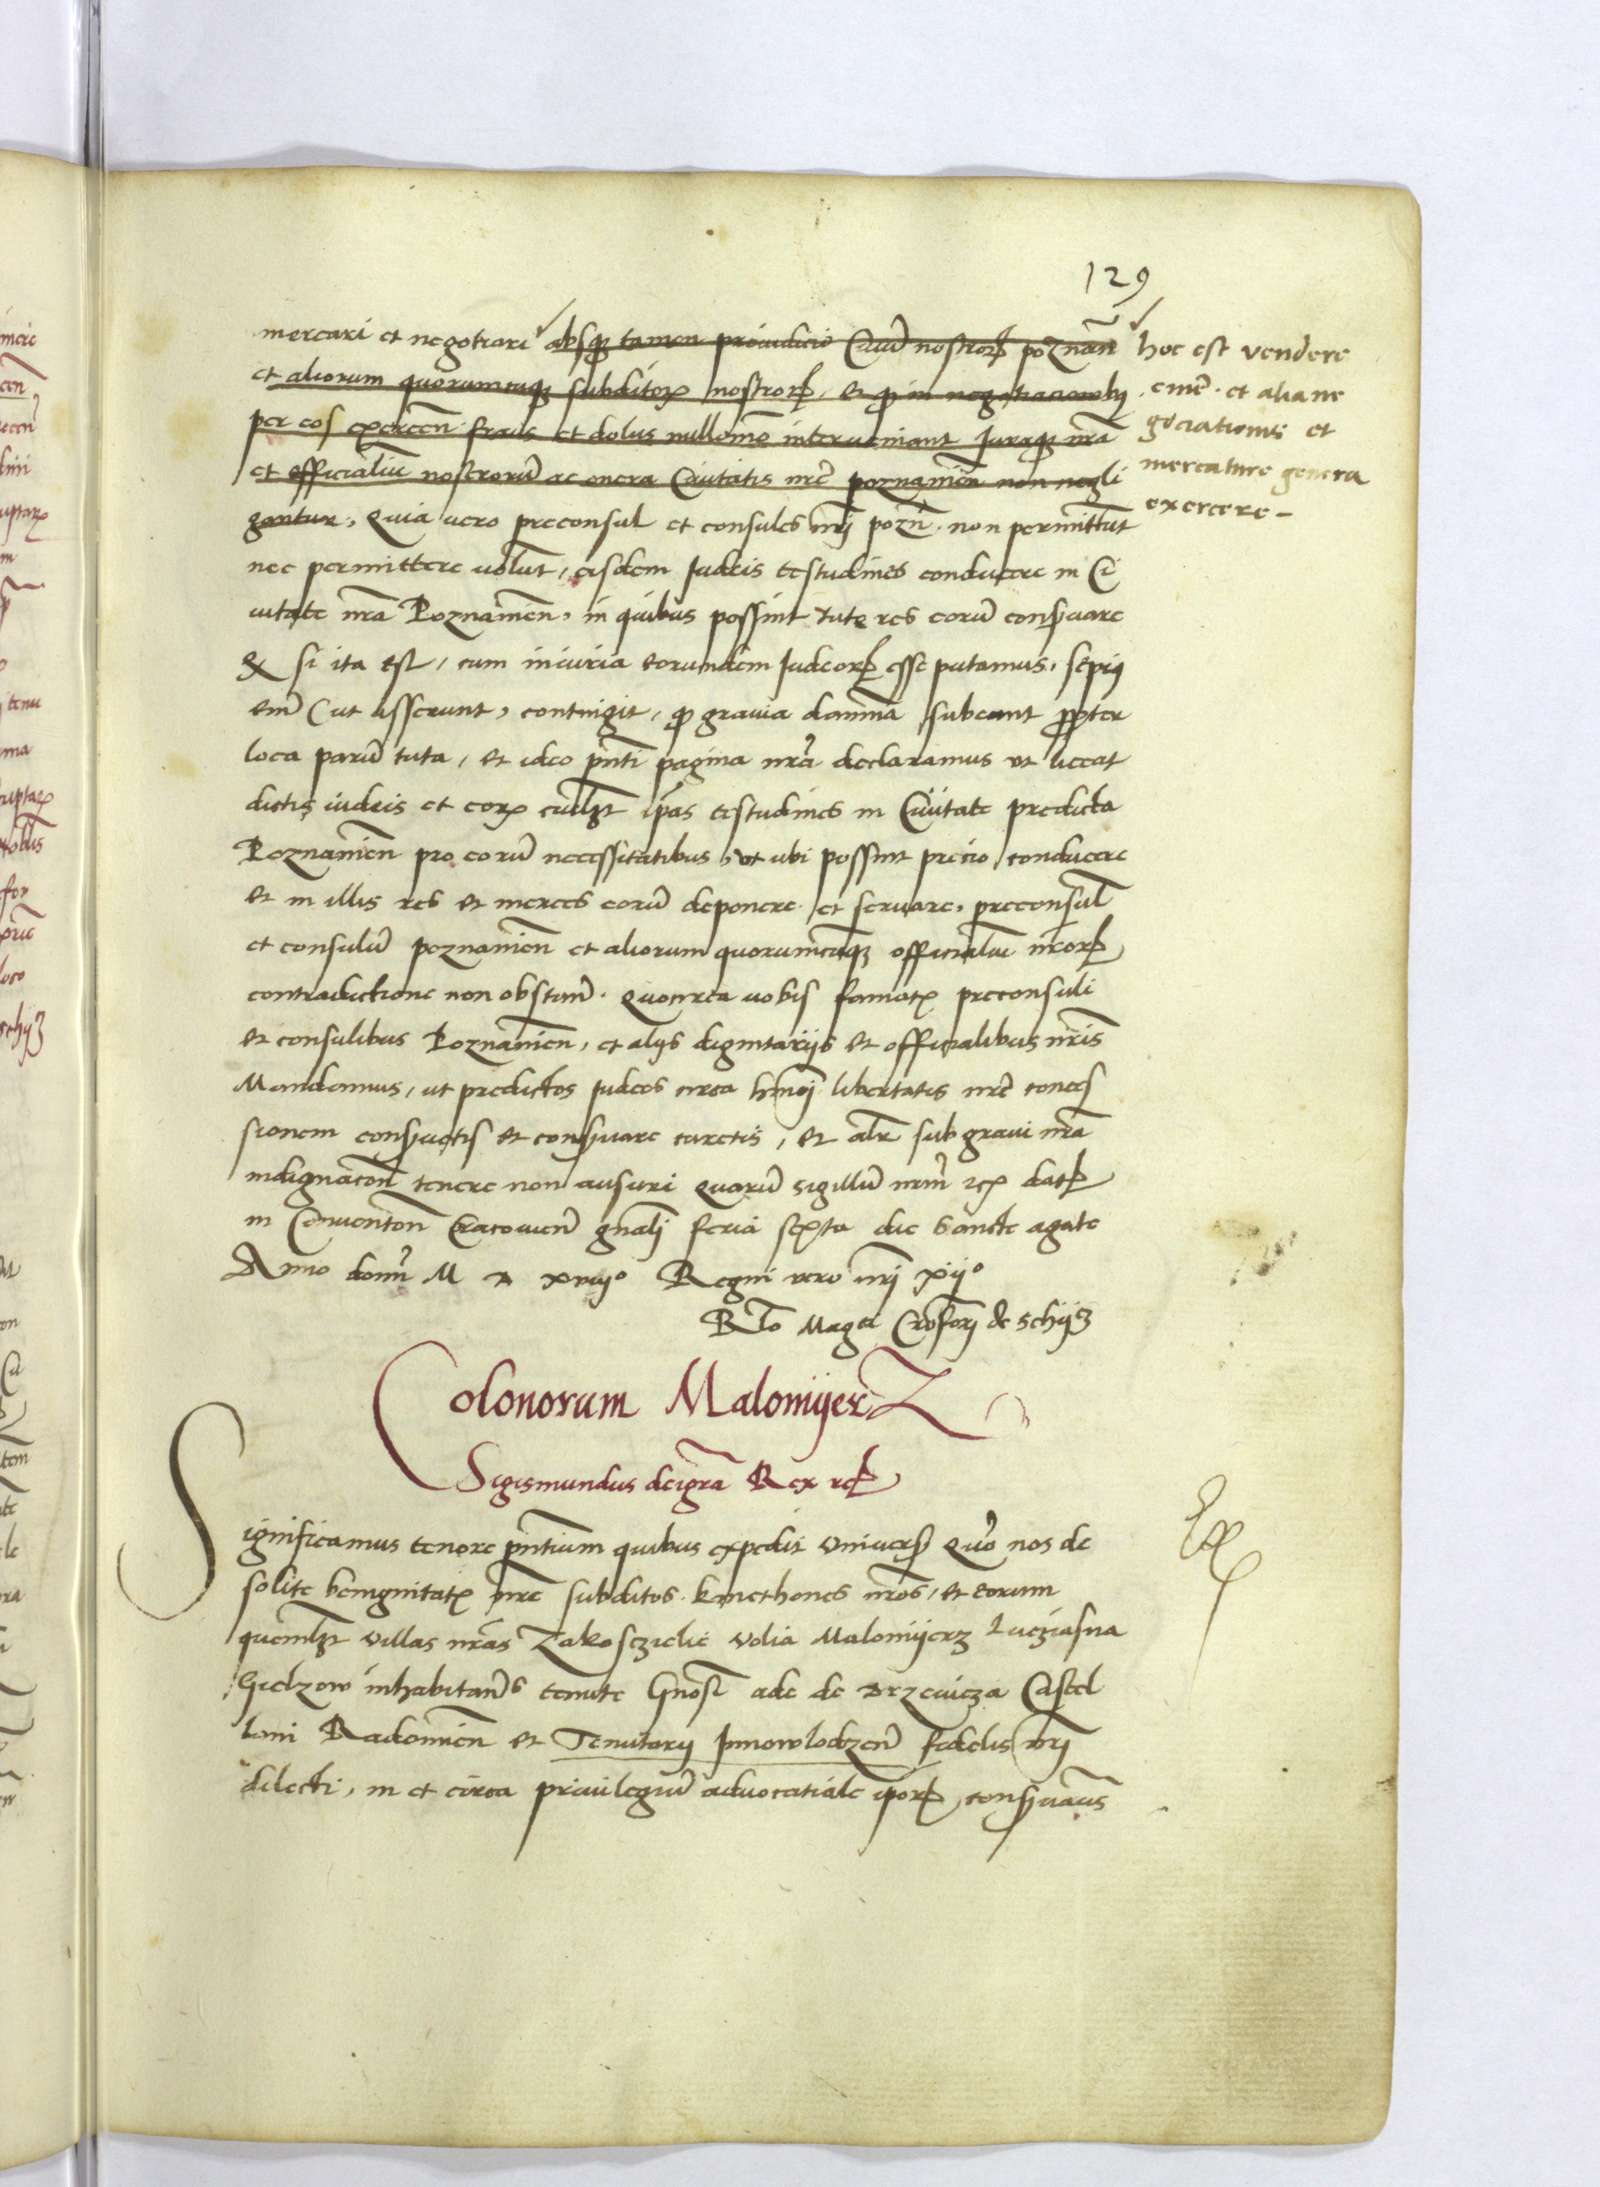 129
mercari et negotiari absqꝫ tamen preiudicio Ciuiū nostrorꝝ poznan̄
et aliorum quorumcunqꝫ subditorꝝ nostrorꝝ, et qꝫ in negotiacionibꝫ
per eos exercen̄ fraus et dolus nullomō interueniant Juraqꝫ nr̄a
et officialiū nostrorū ac onera Ciuitatis nr̄e poznanien̄ non negli
gantur, Quia uero preconsul et consules nr̄i pozn̄. non permittūt
nec permittere uolūt, eisdem Judeis testudines conducere in Ci
uitate nr̄a Poznanien̄, in quibus possint tute res eorū conseruare
si ita est, cum iniuria eorundem Judeorꝝ esse putamus, sepiꝰ
eni̅ (ut asserunt, contingit, qꝫ grauia damna subeant propter
loca parū tuta, et ideo pn̄ti pagina nr̄a declaramus ut liceat
dictis iudeis et eorꝝ cuilꝫt ip̄as testudines in Ciuitate predicta
Poznanien̄ pro eorū necessitatibus, ut ubi possint precio conducere
et in illis res et merces eorū deponere et seruare, preconsul̄
et consulū poznanien̄ et aliorum quorumcunqꝫ officialiū nr̄orꝝ
contradictione non obstan̄. Quocirca uobis famatꝭ preconsuli
et consulibus Poznanien̄, et alijs dignitarijs et officialibus nr̄is
Mandamus, ut predictos Judeos circa hmōi libertatis nr̄e conces
sionem conseruetis et conseruare curetis, et alr̄ sub graui nr̄a
indignacōn tenere non ausuri Quarū sigillū nrm̄ etc datꝭ
in Conuention̄ Cracouien̄ gn̄ali feria sexta die Sancte agate
Anno domī M D xviijº Regni vero nr̄i xijº
Rl̄o Mag̅ci Cristofori de Schijdl
hoc est vendere
emer̄. et alia ne
gociationis et
mercature genera
exercere -
Colonorum Malomijerz
Sigismundus dei gr̄a Rex etc
Significamus tenore pn̄tium quibus expedit vniuersis Quō nos de
solite benignitatꝭ nr̄e subditos kmethones nr̄os, et eorum
quemlꝫt villas nr̄as Zakosczielie Volia Malomijerz Lucziasna
Gielzow inhabitan̄s tenute Gn̄osi ade de Drzeuicza Castel
lani Radomien̄ et Tenutarij Jnnowlodzen̄ fidelis nr̄i
dilecti, in et circa priuilegiū aduocatiale ip̄orꝝ conseruan̄s